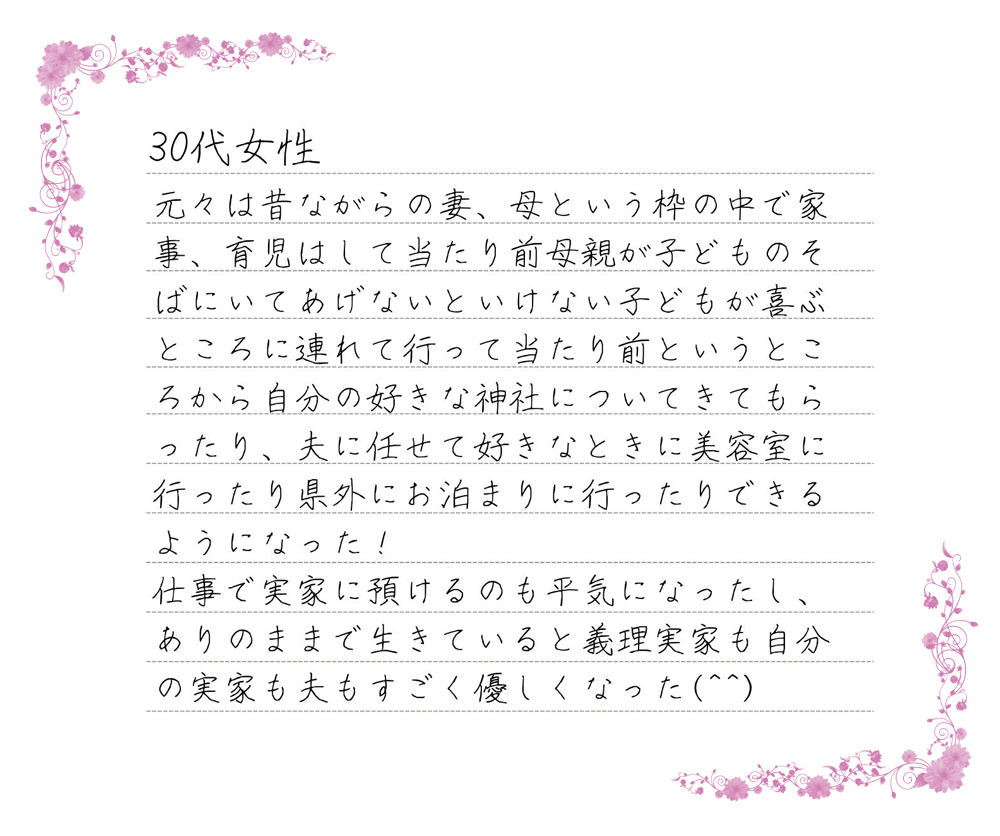 30代女性
元々は昔ながらの妻、母という枠の中で家
事、育児はして当たり前母親が子どものそ
ばにいてあげないといけない子どもが喜ぶ
ところに連れて行って当たり前というとこ
ろから自分の好きな神社についてきてもら
ったり、夫に任せて好きなときに美容室に
行ったり県外にお泊まりに行ったりできる
ようになった！
仕事で実家に預けるのも平気になったし、
ありのままで生きていると義理実家も自分
の実家も夫もすごく優しくなった(^^)